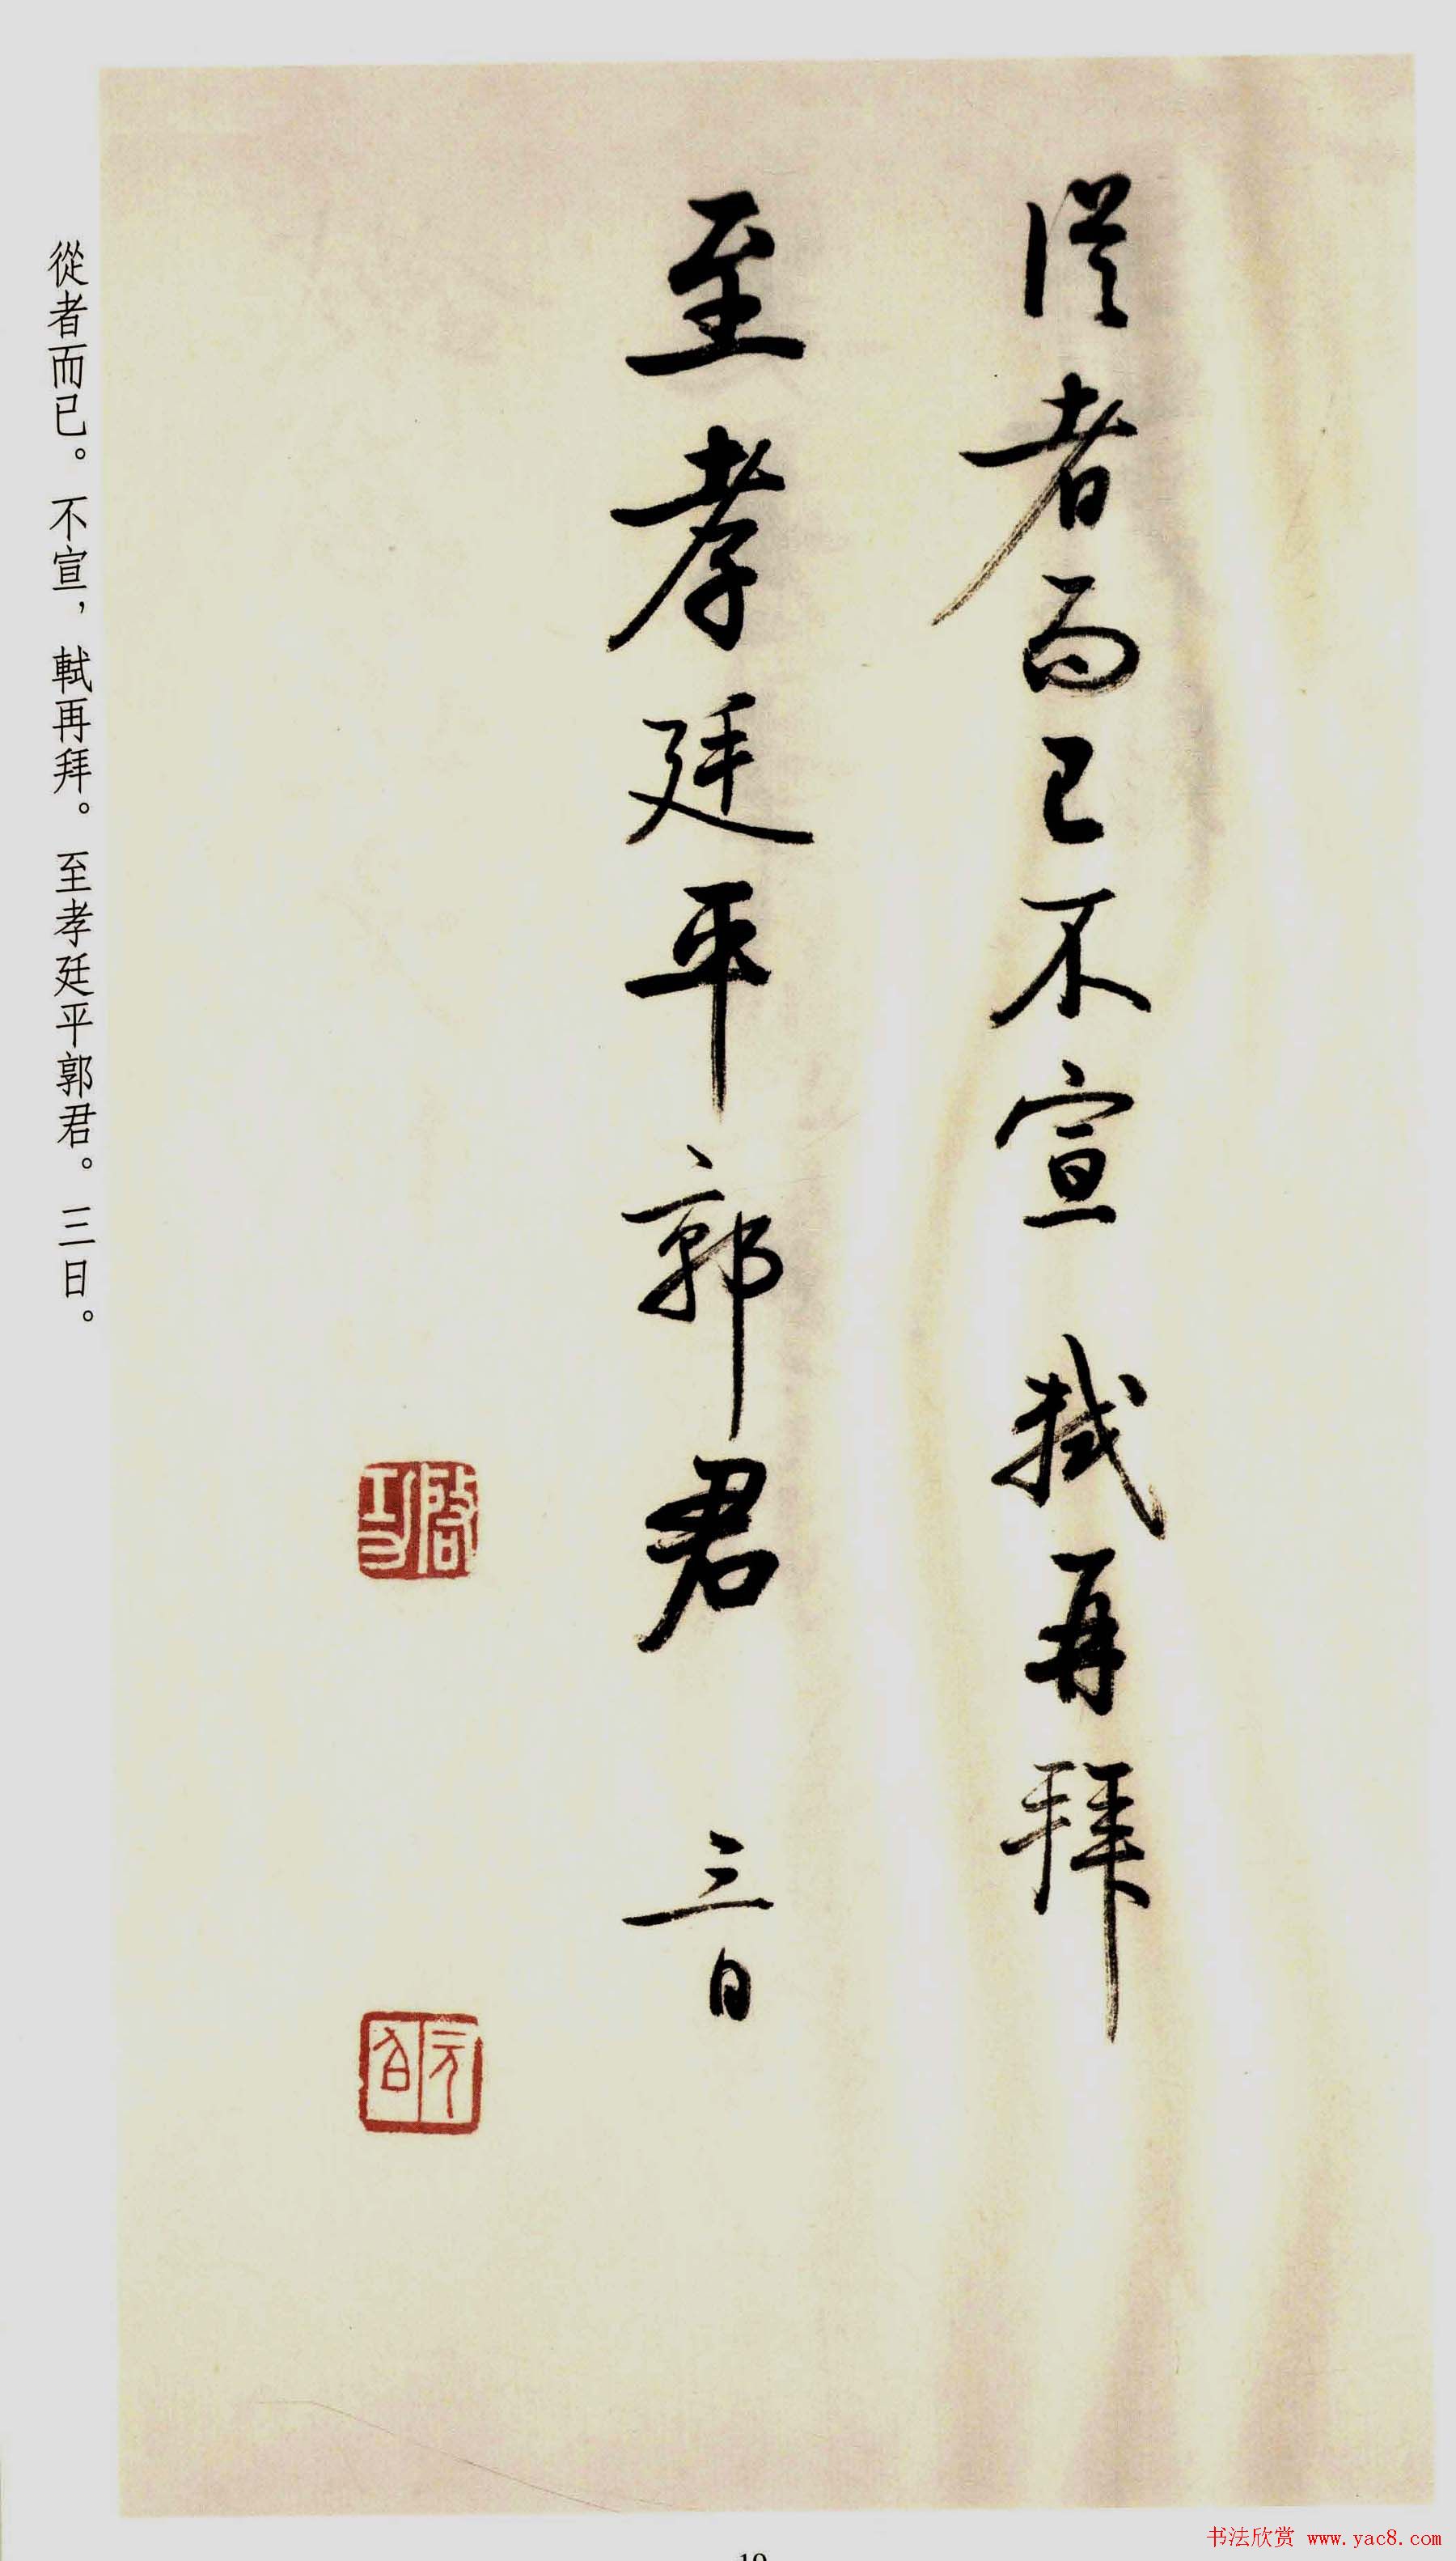 從者而已不宣 軾再拜
至孝廷平郭君 三日
啟功
元白
從者而已。不宣,軾再拜。至孝廷平郭君。三日。
19
书法欣赏 www.yac8.com